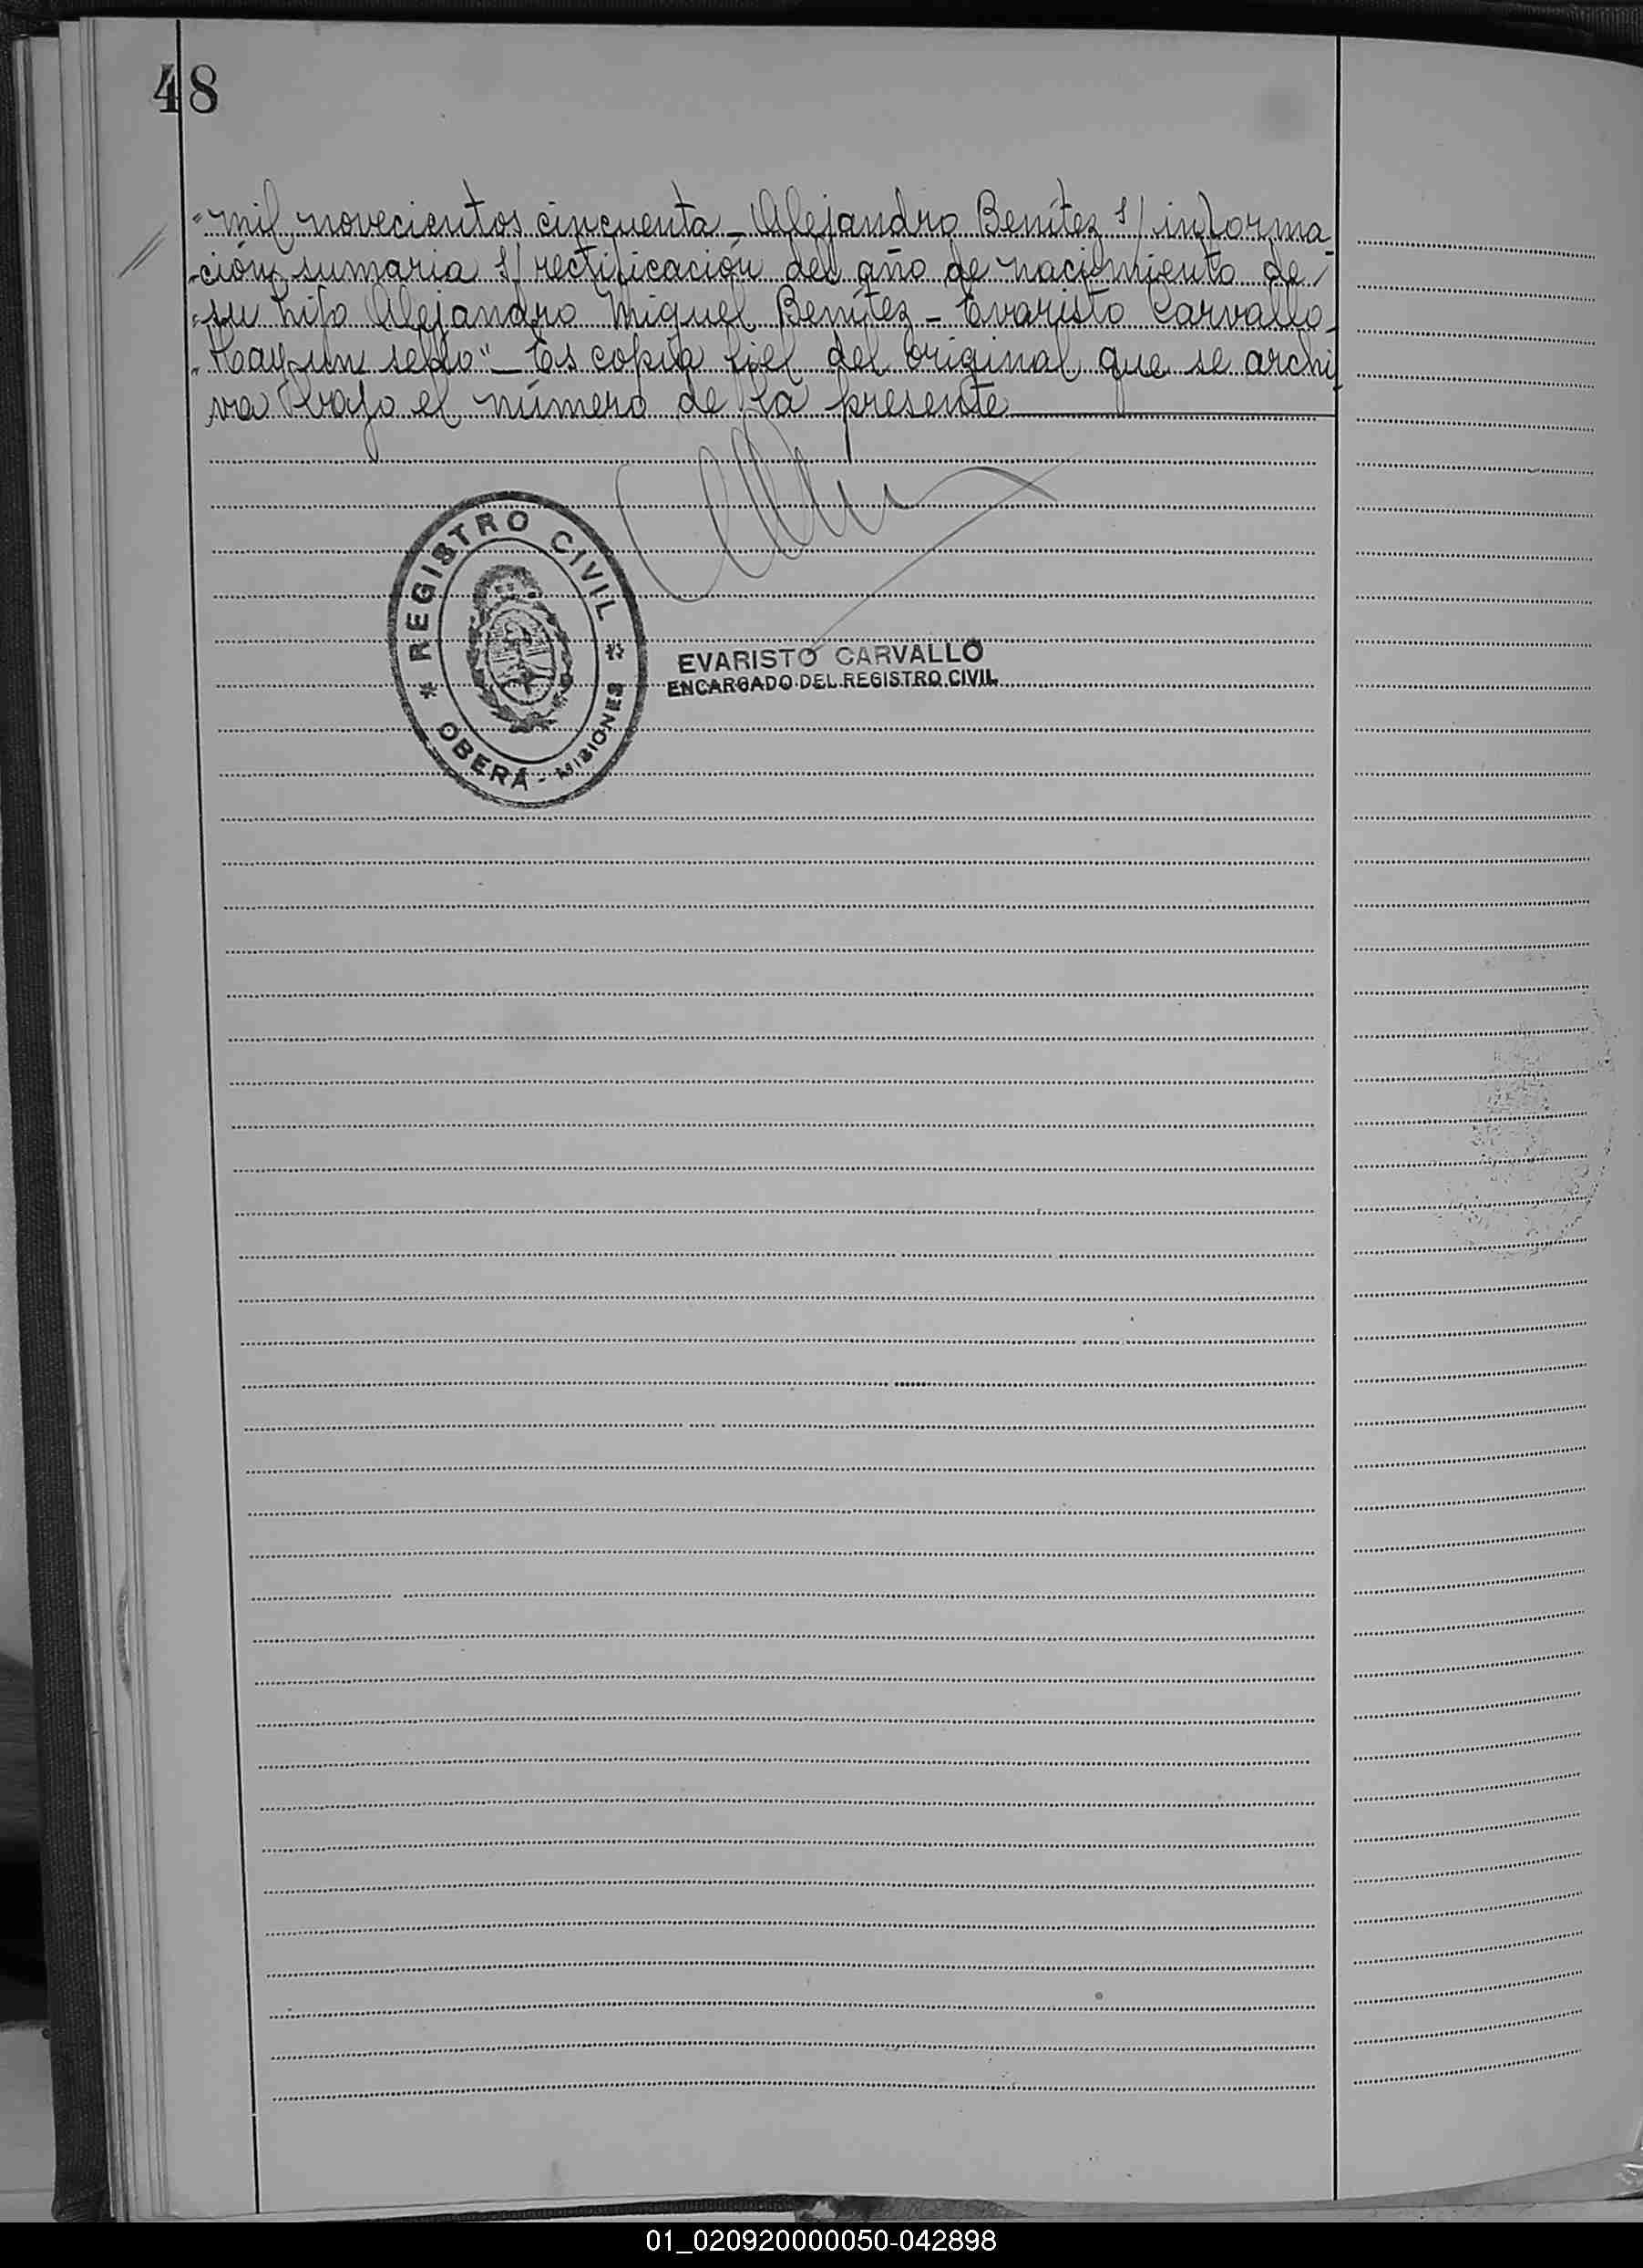 48
"mil novecientos cincuenta - Alejandro Benítez s/ informa
"ción sumaria s/ rectificación del año de nacimiento de
"su hijo Alejandro Miguel Benítez - Evaristo Carvallo.
"Hay un sello" - Es copia fiel del original que se archi
va bajo el número de la presente
REGISTRO CIVIL
OBERÁ - MISIONES
EVARISTO CARVALLO
ENCARGADO DEL REGISTRO CIVIL
01_020920000050-042898